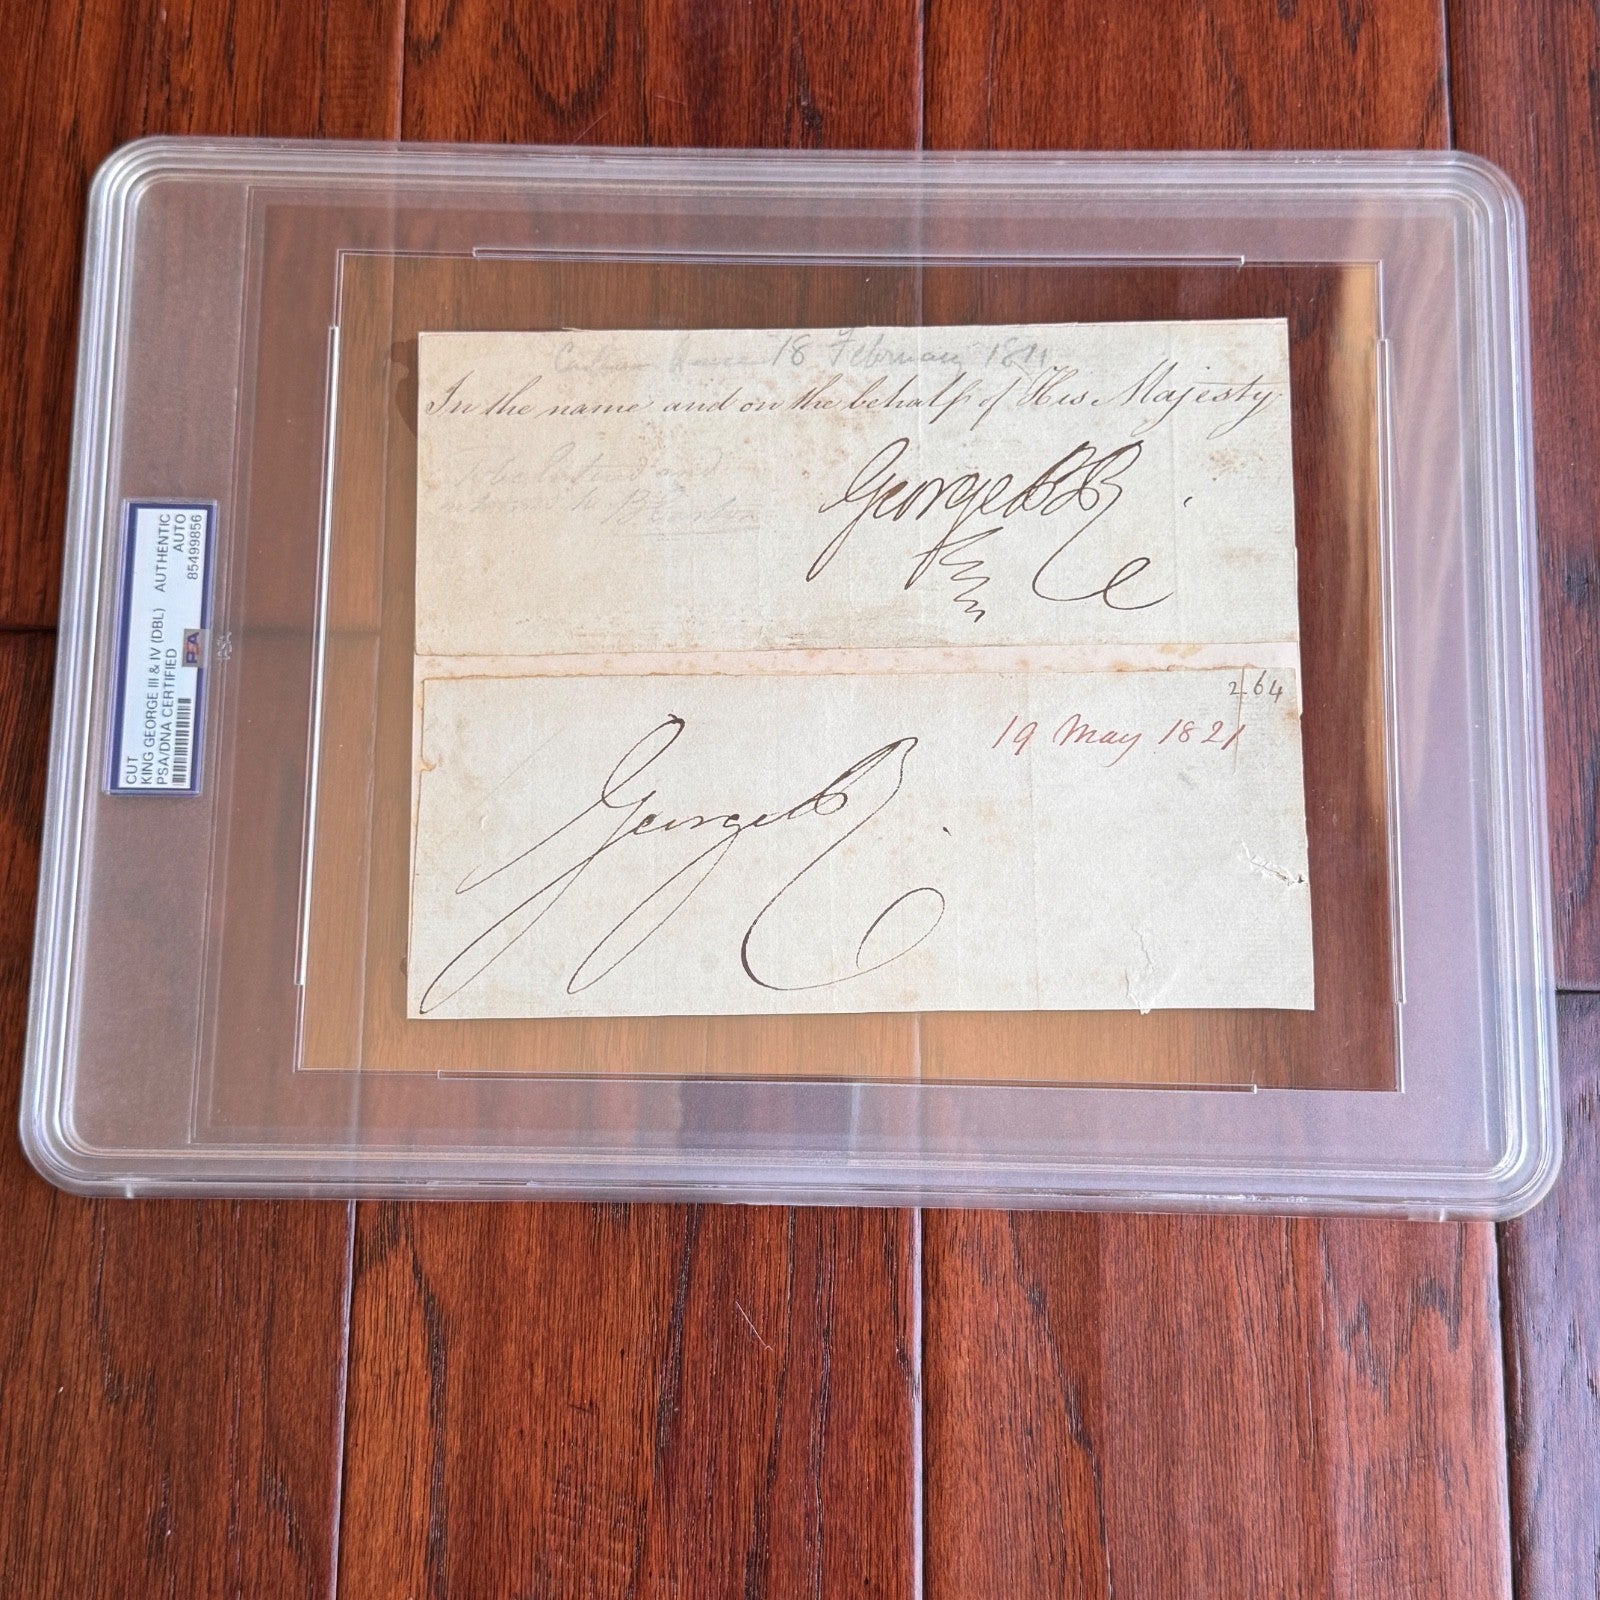 18 February 1811
In the name and on the behalf of His Majesty
and
George P R
264
19 May 1821
George R
CUT
KING GEORGE III & IV (DBL)
PSA/DNA CERTIFIED
AUTHENTIC
AUTO
85499856
PSA